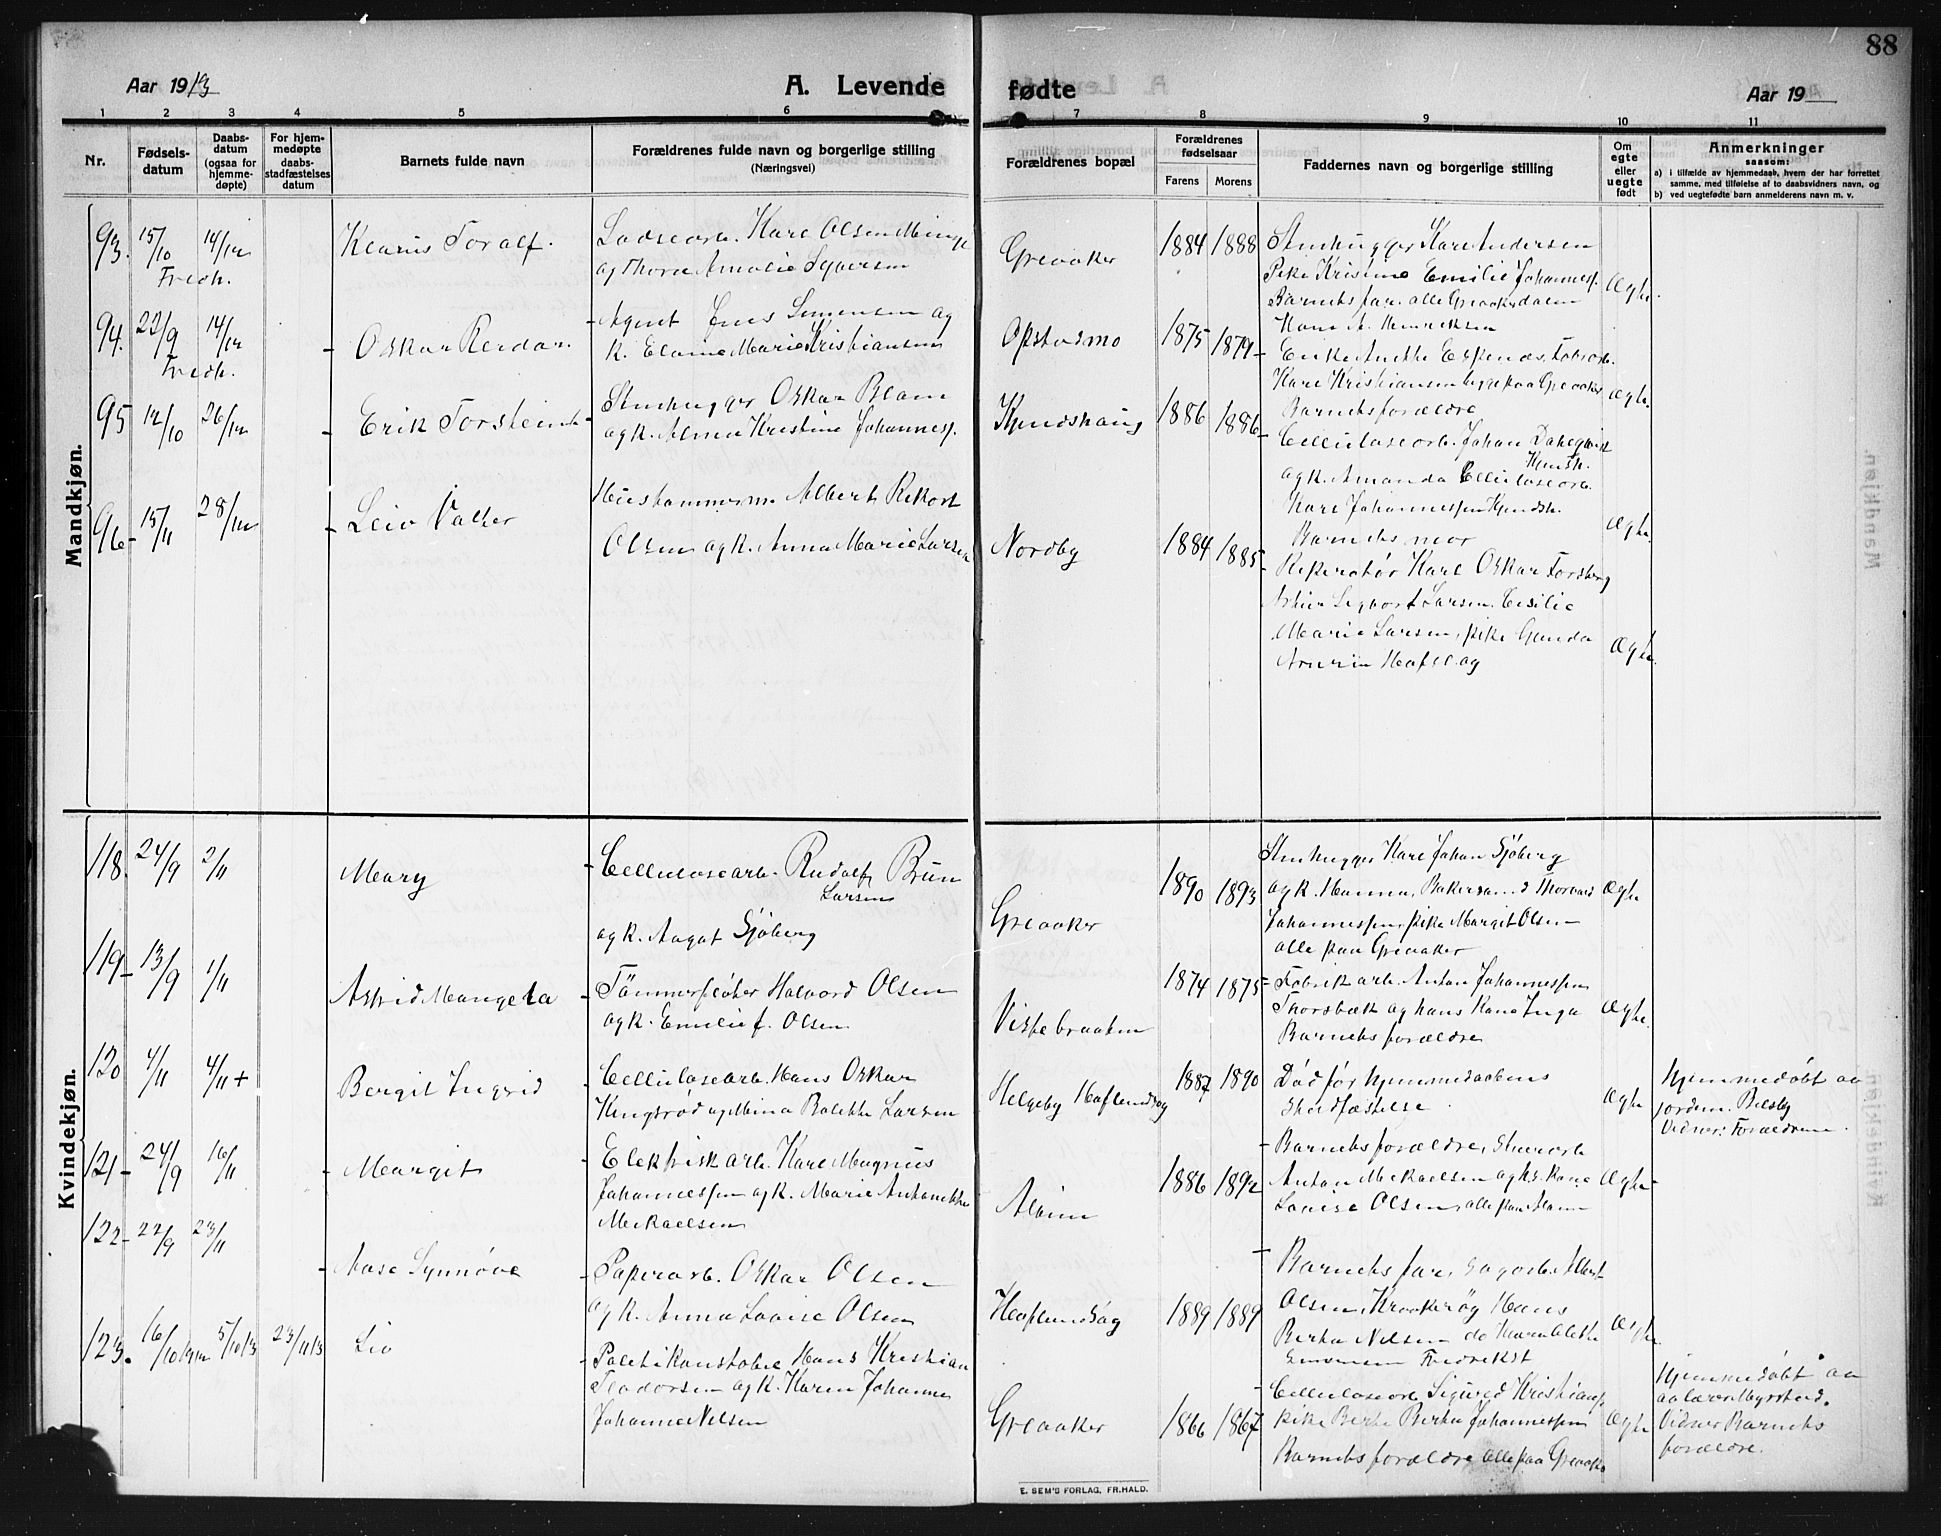 88
Aar 1913
A. Levende
fødte
Aar 19
1 2 3 4 5 6 7 8 9 10 11
Nr.
Fødsels-
datum
Daabs-
datum
(ogsaa for
hjemme-
døpte)
For hjem-
medøpte
daabs-
stadfæstelses
datum
Barnets fulde navn
Forældrenes fulde navn og borgerlige stilling
(Næringsvei)
Forældrenes bopæl
Forældrenes
fødselsaar
Farens Morens
Faddernes navn og borgerlige stilling
Om
egte
eller
uegte
født
Anmerkninger
saasom:
a) i tilfælde av hjemmedaab, hvem der har forrettet
samme, med tilføielse af to daabsvidners navn, og
b) ved uegtefødte barn anmelderens navn m. v.
Mandkjøn.
93. 15/10 14/12
Fredh.
Klarus Toralf.
Lodsearb. Karl Olsen Minge
og Thora Amalie Syversen
Greaaker
1884 1888
Stenhugger Karl Andersen
Pike Kristine Emilie Johannesp.
Barnets far. alle Greaakerdalen
Ægte.
94. 22/9 14/12
Fredh.
Oskar Reidar.
Agent Jens Simensen og
k. Elaine Marie Kristiansen
Opstadmo
1875 1879
Hans A. Henriksen
Enke Anette Espenæs, Fabrarb.
Karl Kristiansen begge paa Greaaker
Barnets forældre
Ægte.
95 12/10 26/12
Erik Torstein
Stenhugger Oskar Blom
og k. Alma Kristine Johannesp.
Kjendshaug
1886 1886
Cellulosearb. Johan Dahlqvist
Kjendsh.
og k. Amanda Cellulosearb.
Karl Johannessen Kjendsh.
Barnets mor
Ægte.
96 15/11 28/12
Leiv Valter
Albert Rikard
Olsen og k. Anna Marie Larsen
Nordby
1884 1885
Reperatør Karl Oskar Forsberg
Sigvart Larsen. Cesilie
Marie Larsen, pike Gunda
Hafsl.ag
Ægte.
Kvindekjøn.
118. 24/9 2/11
Mary
Cellulosearb. Rudolf Brun
Larsen
og k. Aagot Sjøberg
Greaaker
1890 1893
Stenhugger Karl Johan Sjøberg
og k. Hanna, Bakersvend Thorvald
Johannessen, pike Margit Olsen
alle paa Greaaker
Ægte
119 13/9 1/11
Astrid Mangela
Tømmerfløter Halvord Olsen
og k. Emilie f. Olsen
Vistebraaten
1874 1875
Fabrikarb. Anton Johannessen
Thorsbæk og hans Kone Inga
Barnets forældre
Ægte.
120 4/11 4/11 +
Bergit Ingrid
Cellulosearb. Hans Oskar
Kingsrød og Mina Bolette Larsen
Helgeby Haflundsøg
1887 1890
Død før hjemmedaabens
Stadfæstelse.
Ægte
Hjemmedøbt av
jordem. Bilsby
Vidner: Forældrene.
121 24/9 16/11
Margit
Elektriskarb. Karl Magnus
Johannessen og k. Marie Antonette
Mikaelsen
Alvim
1886 1892
Barnets forældre,
Anton Mikaelsen og hs. kone
Lovise Olsen, alle paa Alvim
Ægte
122 22/9 23/11
Aase Synnøve
Papirarb. Oskar Olsen
og k. Anna Lovise Olsen
Haflundsøg
1889 1889
Barnets far, Sagarb. Albert
Olsen, Hans
Berta Nilsen do
Simensen Fredrikst
Ægte.
123. 16/10 1912 5/10 13 23/11 13
Liv
Politikonstabel Hans Kristian
Teodorsen og k. Karen Johanne
Johanne Nilsen
Greaaker
1866 1867
Cellulosearb Sigurd Kristiansp.
pike Berta Johannessen
Barnets forældre alle paa Greaaker
Ægte
Hjemmedøbt av
Vidner Barnets
forældre.
E. SEM'S FORLAG, FR.HALD.